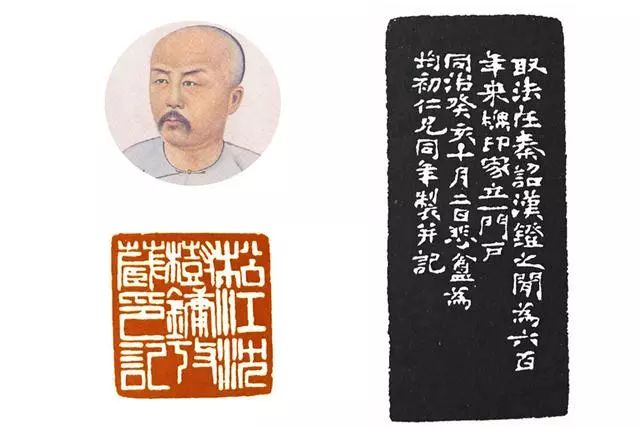 松江沈
樹鏞攷
藏印記
取法在秦詔漢鐙之閒為六百
年來橅印家立一門戶
同治癸亥十月二日悲盦為
均初仁兄同年製并記